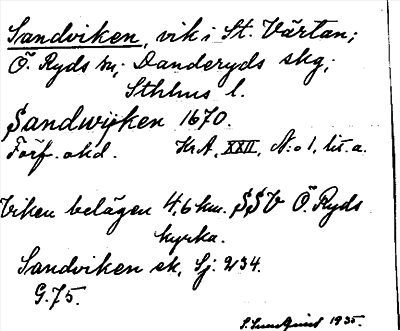 Sandviken, vik i St. Värtan;
Ö. Ryds sn; Danderyds skg;
Sthlms l.
Sandwijken 1670.
Förf. okd. Kr A, XXII, N:o 1, lit. a.
Viken belägen 4,6 km. SSV Ö. Ryds
kyrka.
Sandviken ek. Sj. 234.
G.75.
S. Lundquist 1935.